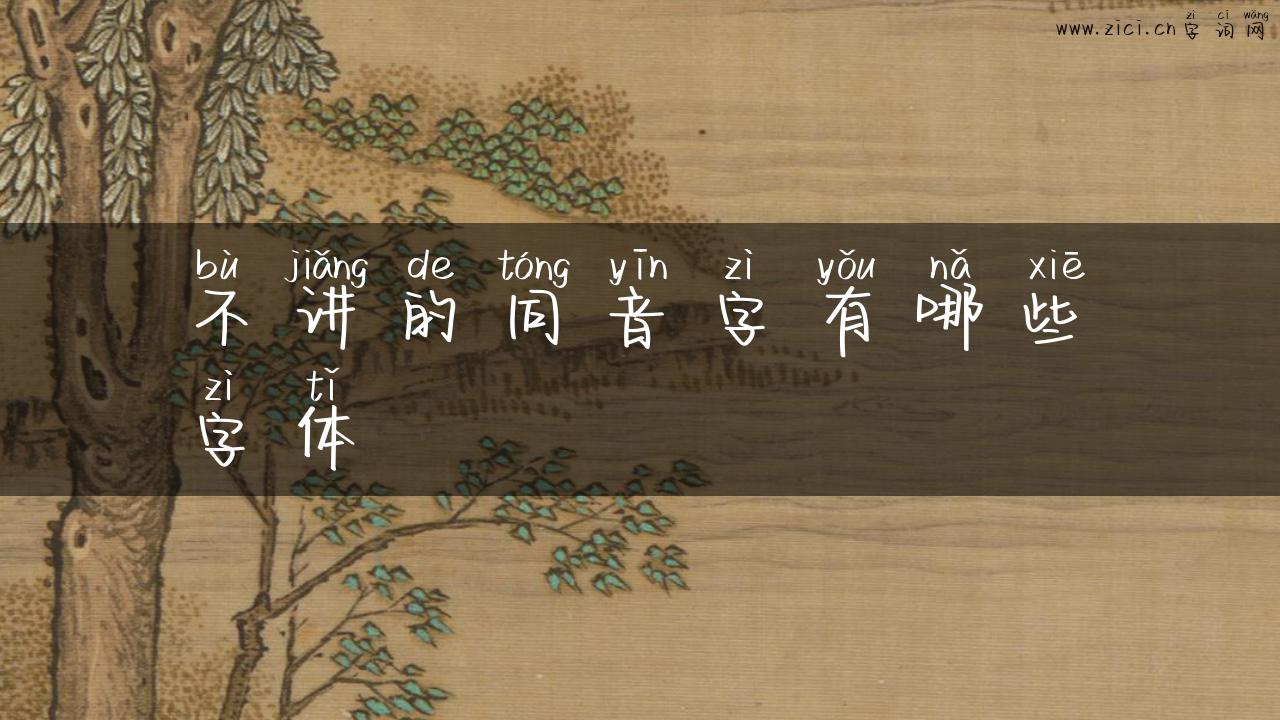 zì cí wǎng
www.zici.cn 字词网
bù jiǎng de tóng yīn zì yǒu nǎ xiē
不讲的同音字有哪些
zì tǐ
字体